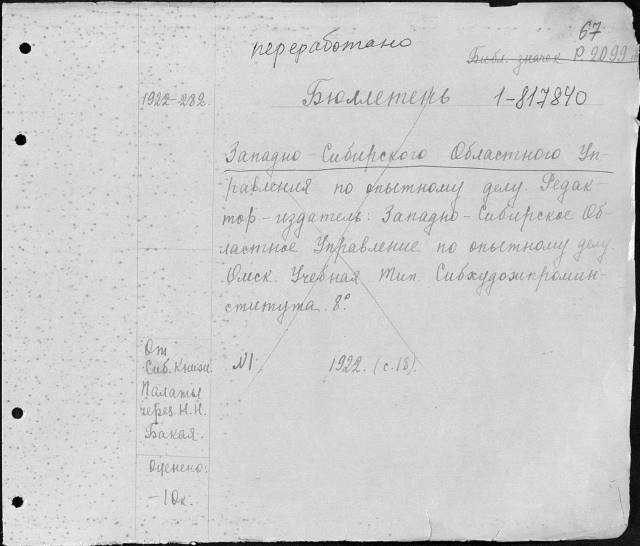 67
переработано
Библ. значок Р 2099
1922-282.
Бюллетень 1-817840
Западно-Сибирского Областного Уп-
равления по опытному делу. Редак-
тор-издатель: Западно-Сибирское Об-
ластное Управление по опытному делу.
Омск. Учебная тип. Сибхудожпромин-
ститута. 8°.
От
Сиб. Книжн.
Палаты
через. Н. Н.
Бакая.
№1. 1922. (с.18).
Оценено:
-10к.